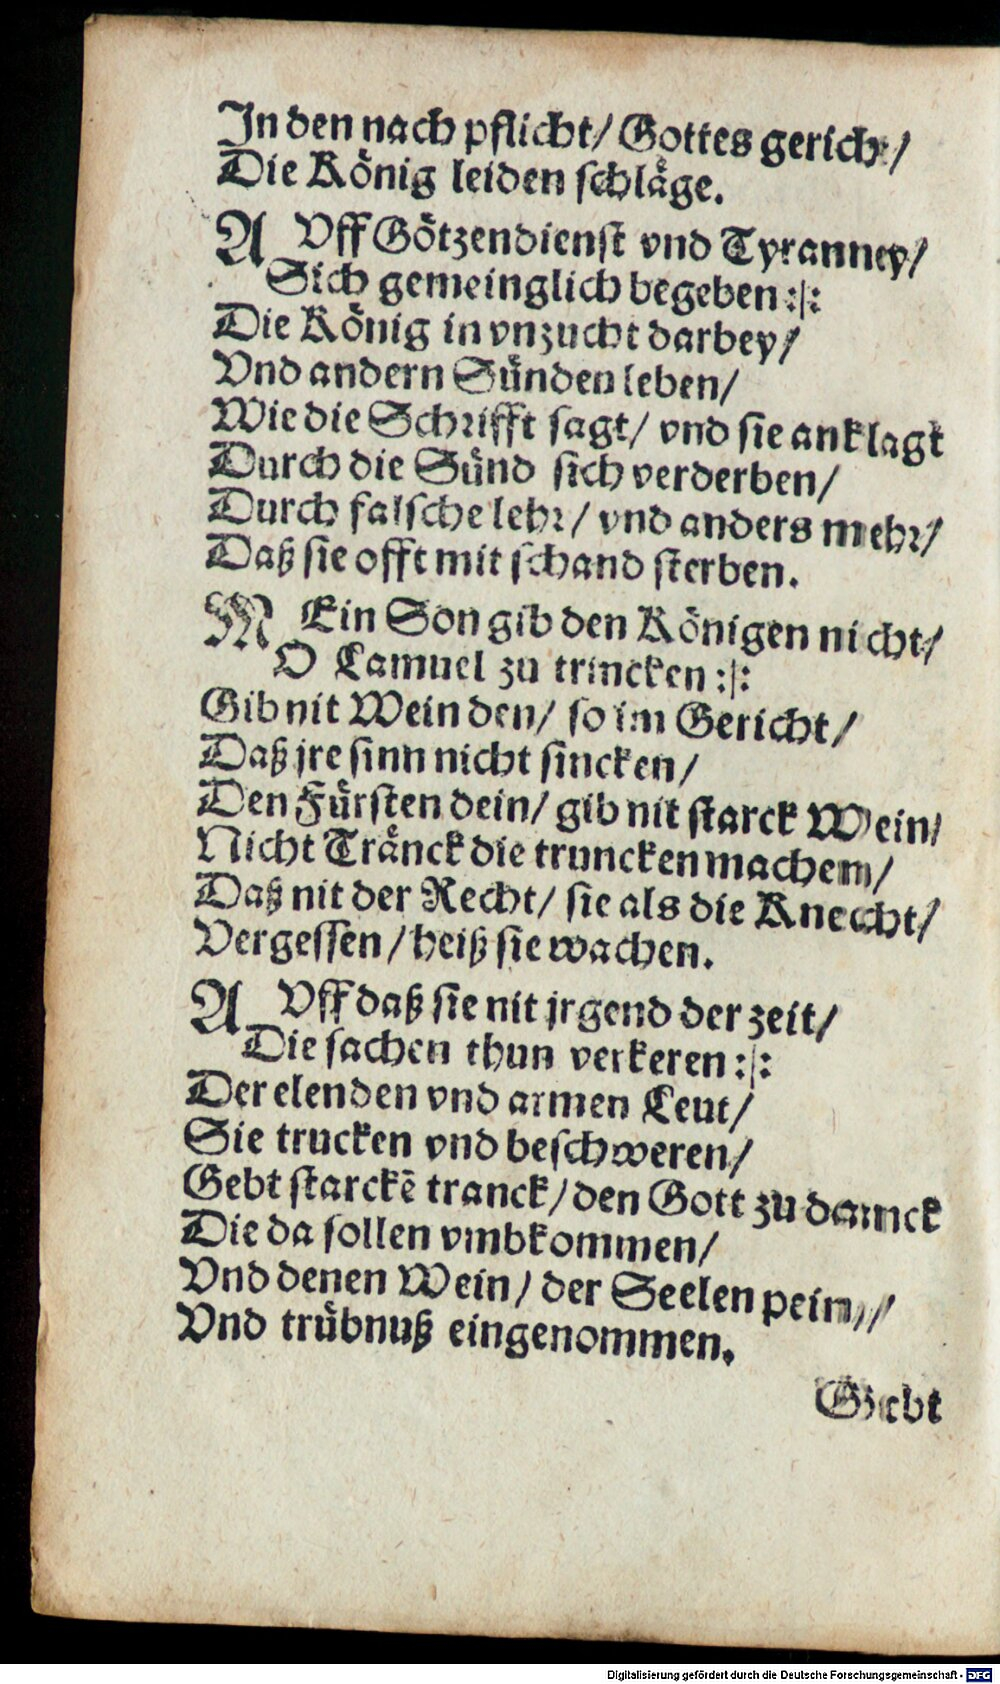 In den nach pflicht/ Gottes gericht/
Die König leiden schläge.
AUff Götzendienst vnd Tyranney/
Sich gemeinglich begeben :|:
Die König in vnzucht darbey/
Vnd andern Sünden leben/
Wie die Schrifft sagt/ vnd sie anklagt
Durch die Sünd sich verderben/
Durch falsche lehr/ vnd anders mehr/
Daß sie offt mit schand sterben.
MEin Son gib den Königen nicht/
O Lamuel zu trincken :|:
Gib nit Wein den/ so im Gericht/
Daß jre sinn nicht sincken/
Den Fürsten dein/ gib nit starck Wein/
Nicht Tränck die truncken machem/
Daß nit der Recht/ sie als die Knecht/
Vergessen/ heiß sie wachen.
AVff daß sie nit jrgend der zeit/
Die sachen thun verkeren :|:
Der elenden vnd armen Leut/
Sie trucken vnd beschweren/
Gebt starckē tranck/ den Gott zu danck
Die da sollen vmbkommen/
Vnd denen Wein/ der Seelen pein//
Vnd trübnuß eingenommen.
Gebt
Digitalisierung gefördert durch die Deutsche Forschungsgemeinschaft - DFG